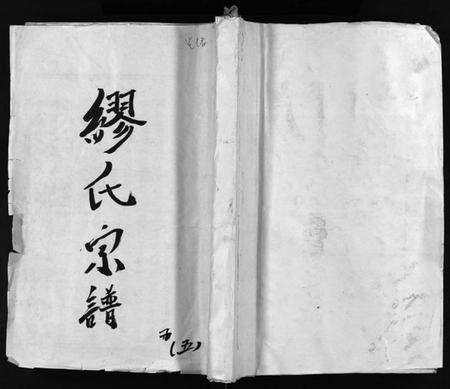 繆氏宗譜
五
(五)